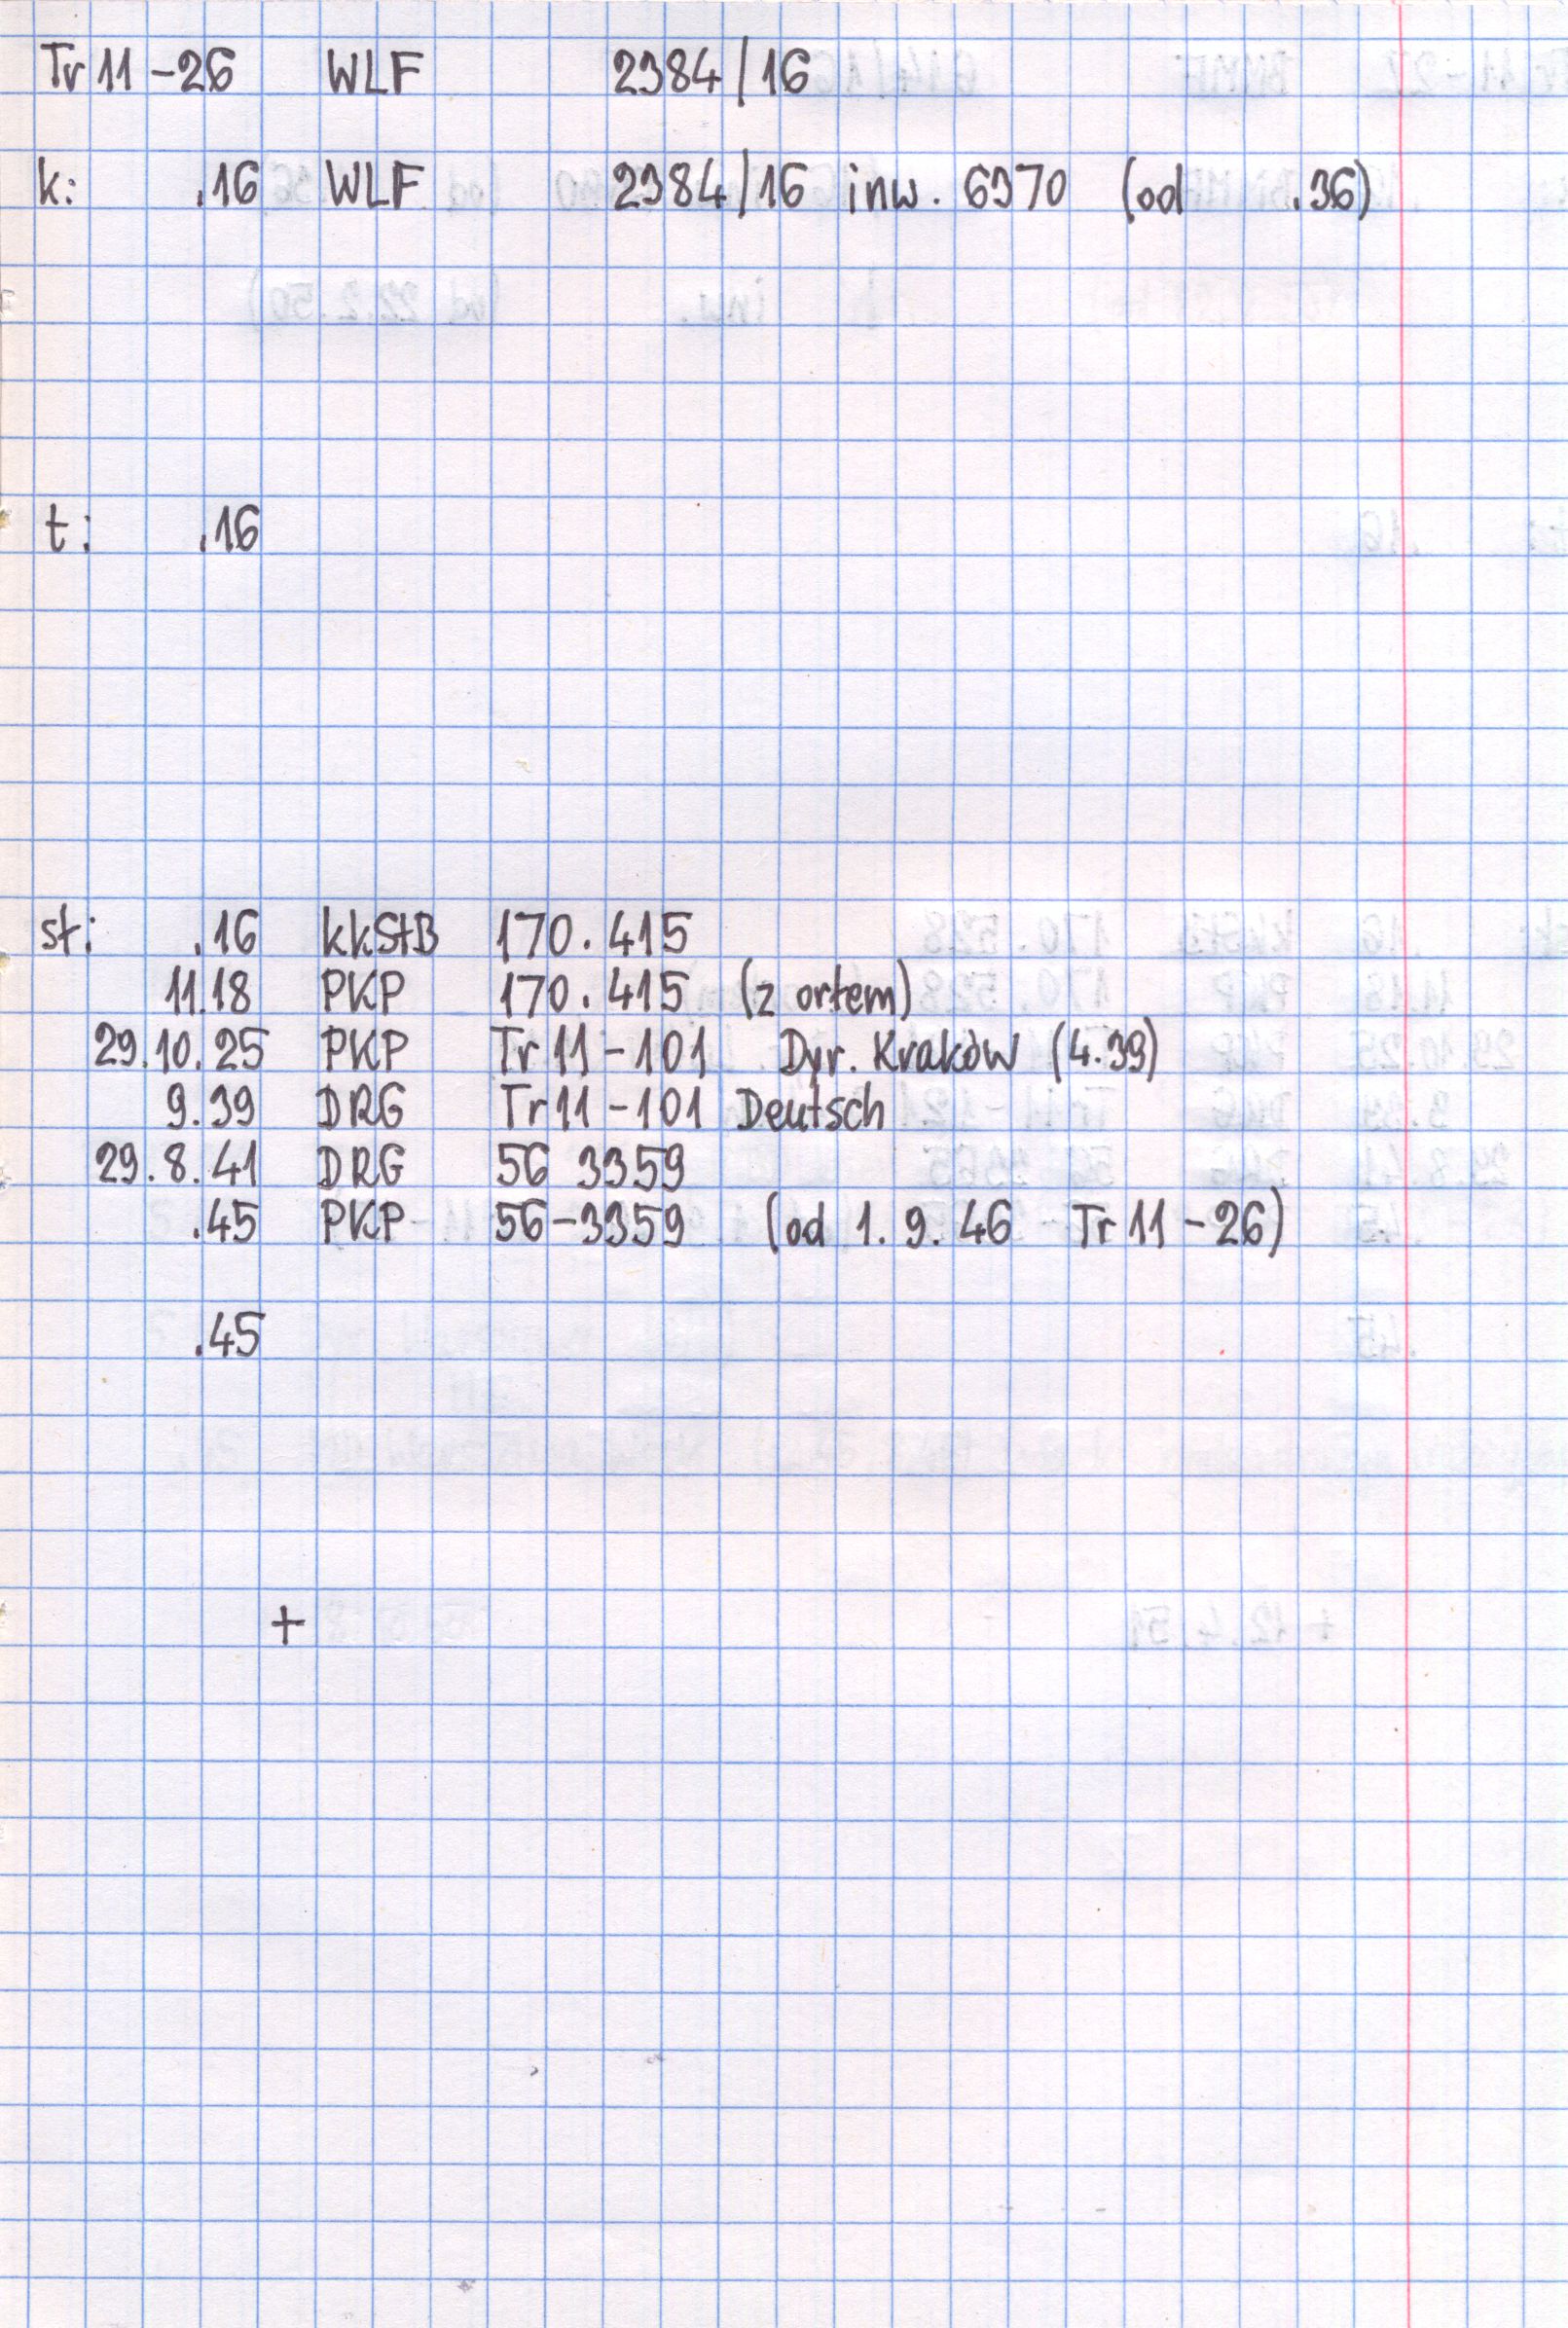 Tr 11-26 WLF 2384/16
k: .16 WLF 2384/16 inw. 6370 (od .36)
t: .16
st: .16 kkStB 170.415
11.18 PKP 170.415 (z ortem)
29.10.25 PKP Tr 11-101 Dyr. Kraków (4.39)
9.39 DRG Tr 11-101 Deutsch
29.8.41 DRG 56 3359
.45 PKP 56-3359 (od 1.9.46 Tr 11-26)
.45
+